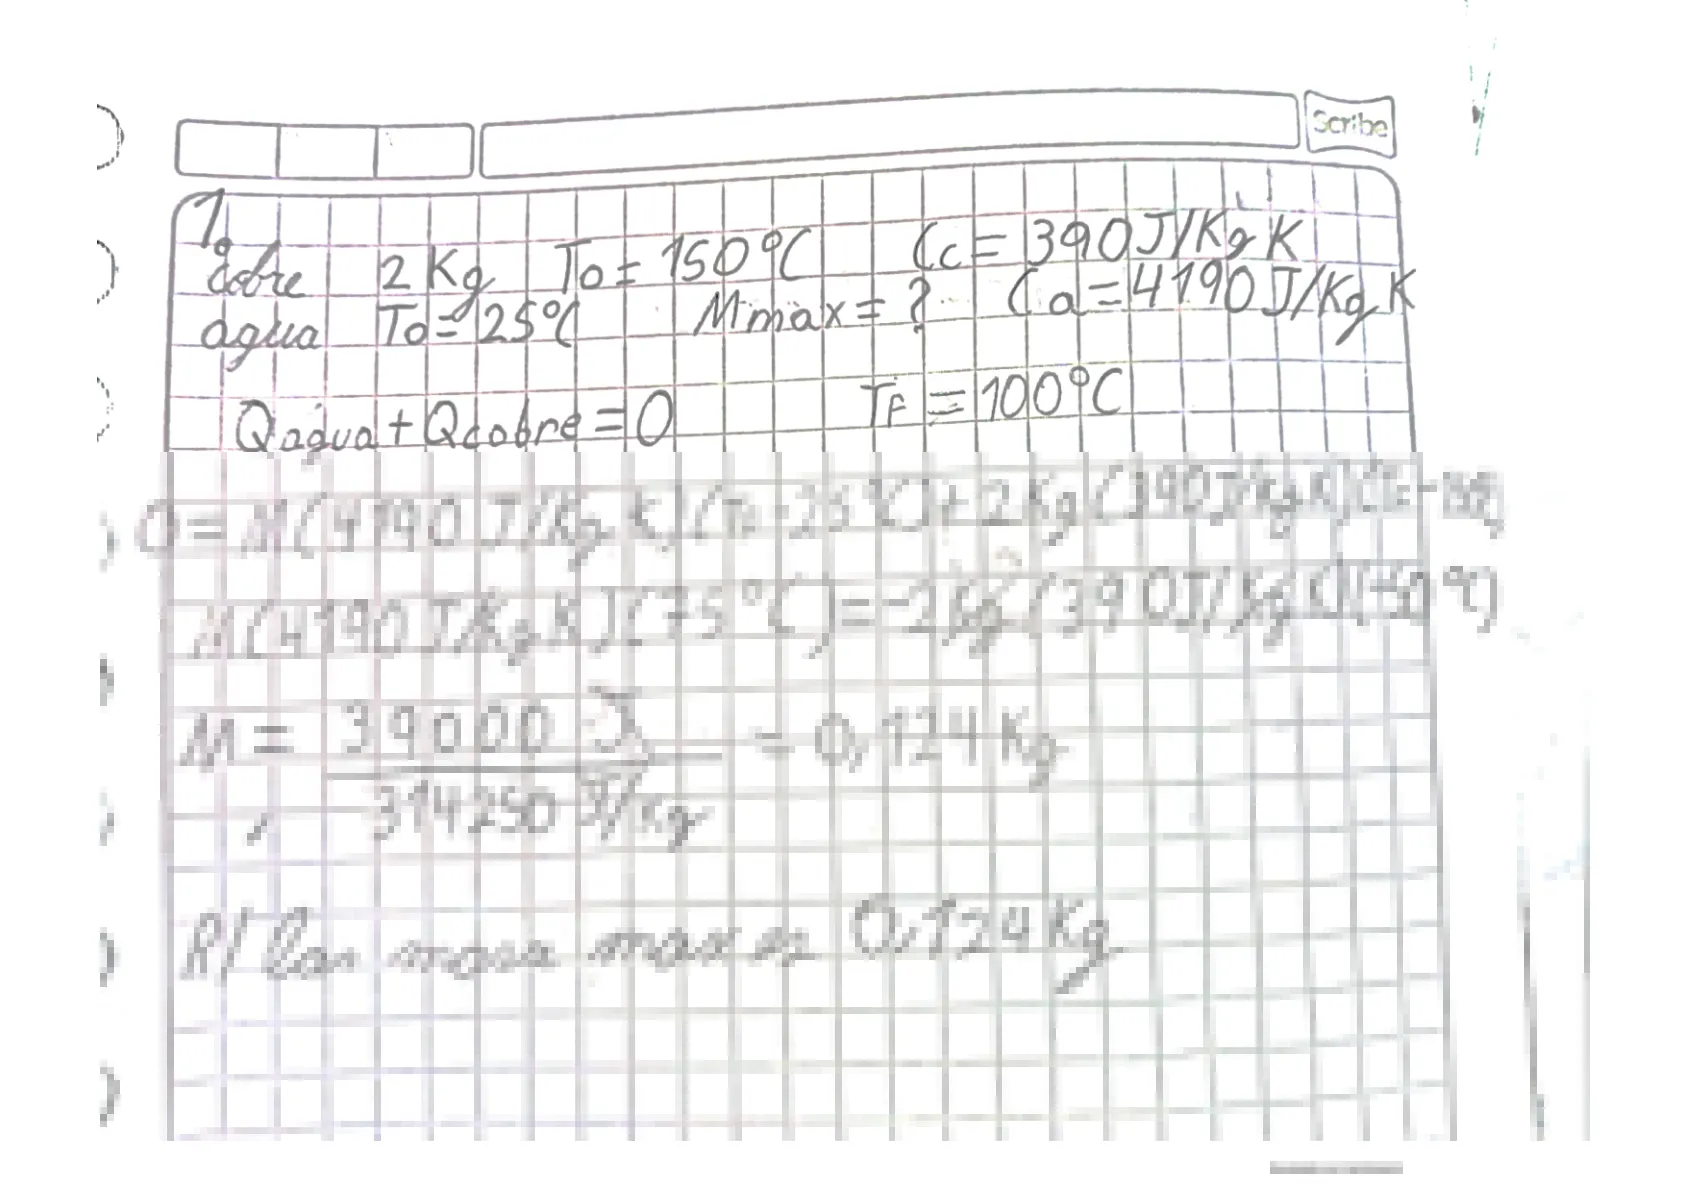 Scribe
1.
Cobre 2 Kg To = 150°C Cc = 390 J/Kg K
agua To = 25°C Mmax = ? Ca = 4190 J/Kg K
Qagua + Qcobre = 0 TF = 100°C
0 = M(4190 J/Kg K)( - 25°C) + 2 Kg (390 J/Kg K)
M(4190 J/Kg K)(75°C) = -2 Kg (390 J/Kg K)(-50°C)
M = 39000 J = 0,124 Kg
314250 J/Kg
R/ masa max es 0,124 Kg